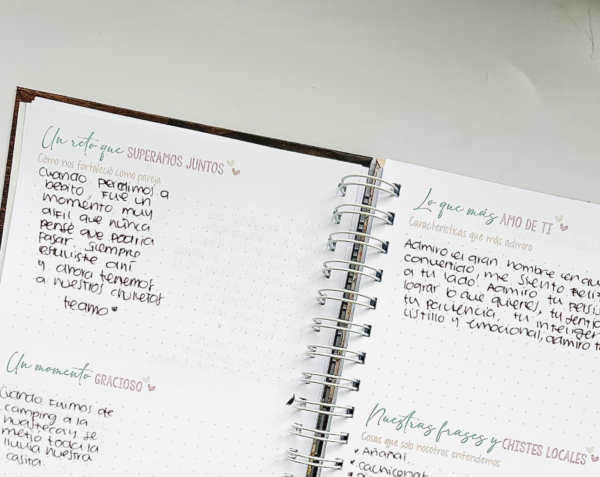 Un reto que SUPERAMOS JUNTOS
Como nos fortaleció como pareja
Cuando perdimos a
bebito, fue un
momento muy
difil que nunca
pensé que podría
pasar. siempre
estuviste ahí
y ahora tenemos
a nuestros
teamo
Un momento GRACIOSO
Cuando fuimos de
camping a la
huasteca y se
metió toda la
lluvia nuestra
casita.
Lo que más AMO DE TI
Características que más admiro
Admiro el gran hombre en que
convertido, me siento
a tu lado. Admiro tu
lograr lo que quieres, tu
tu paciencia, tu
listillo y emocional, admiro
Nuestras frases y CHISTES LOCALES
Cosas que solo nosotros entendemos